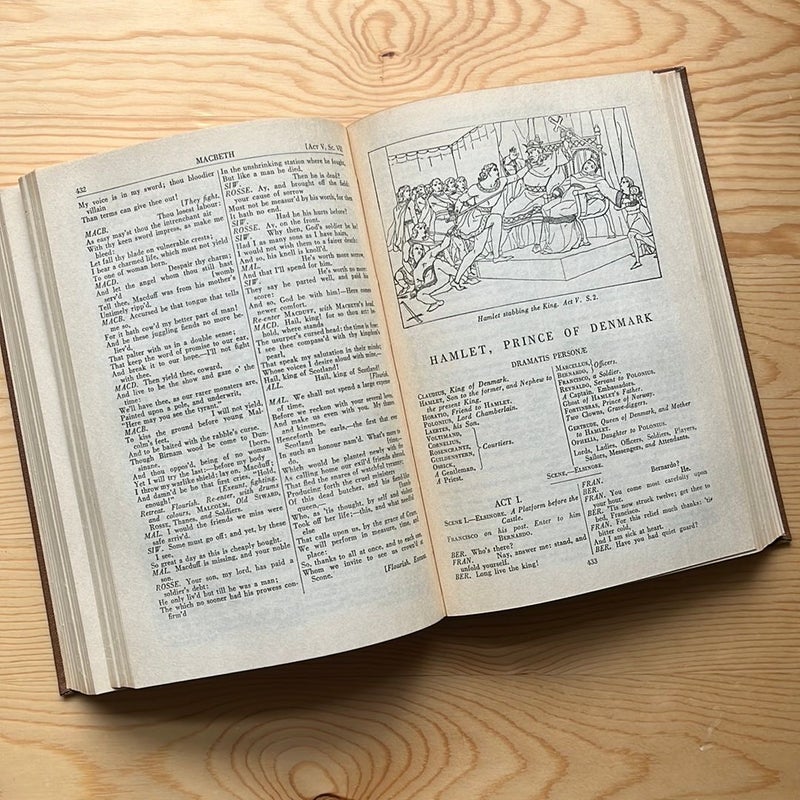 432
MACBETH
[Act V, Sc. VII
My voice is in my sword; thou bloodier
villain
Than terms can give thee out! [They fight.
MACB. Thou losest labour:
As easy may'st thou the intrenchant air
With thy keen sword impress, as make me
bleed:
Let fall thy blade on vulnerable crests;
I bear a charmed life, which must not yield
To one of woman born.
MACD. Despair thy charm;
And let the angel whom thou still hast
serv'd
Tell thee, Macduff was from his mother's [womb
Untimely ripp'd.
MACB. Accursed be that tongue that tells
me so,
For it hath cow'd my better part of man!
And be these juggling fiends no more be-
liev'd,
That palter with us in a double sense;
That keep the word of promise to our ear,
And break it to our hope.—I'll not fight
with thee.
MACD. Then yield thee, coward,
And live to be the show and gaze o' the
time:
We'll have thee, as our rarer monsters are,
Painted upon a pole, and underwrit,
"Here may you see the tyrant."
MACB. I will not yield,
To kiss the ground before young Mal-
colm's feet,
And to be baited with the rabble's curse.
Though Birnam wood be come to Dun-
sinane,
And thou oppos'd, being of no woman
Yet I will try the last:—before my body
I throw my warlike shield: lay on, Macduff;
And damn'd be he that first cries, "Hold,
enough!" [Exeunt, fighting.
Retreat. Flourish. Re-enter, with drums
and colours, MALCOLM, Old SIWARD,
Rosse, Thanes, and Soldiers.
MAL. I would the friends we miss were
safe arriv'd.
SIW. Some must go off: and yet, by these
I see,
So great a day as this is cheaply bought.
MAL. Macduff is missing, and your noble
son.
ROSSE. Your son, my lord, has paid a
soldier's debt:
He only liv'd but till he was a man;
The which no sooner had his prowess con-
firm'd
In the unshrinking station where he fought,
But like a man he died.
SIW. Then he is dead?
ROSSE. Ay, and brought off the field:
your cause of sorrow
Must not be measur'd by his worth, for then
It hath no end.
SIW. Had he his hurts before?
ROSSE. Ay, on the front.
SIW. Why then, God's soldier be he!
Had I as many sons as I have hairs,
I would not wish them to a fairer death:
And so, his knell is knoll'd.
MAL. He's worth more sorrow,
And that I'll spend for him.
SIW. He's worth no more:
They say he parted well, and paid his
score:
And so, God be with him!—Here comes
newer comfort.
Re-enter MACDUFF, with MACBETH's head.
MACD. Hail, king! for so thou art: be-
hold, where stands
The usurper's cursed head: the time is free:
I see thee compass'd with thy kingdom's
pearl,
That speak my salutation in their minds;
Whose voices I desire aloud with mine,—
Hail, king of Scotland!
ALL. Hail, king of Scotland!
[Flourish.
MAL. We shall not spend a large expense
of time,
Before we reckon with your several loves,
And make us even with you. My thanes
and kinsmen,
Henceforth be earls,—the first that ever
Scotland
In such an honour nam'd. What's more to
do,
Which would be planted newly with the
As calling home our exil'd friends abroad,
That fled the snares of watchful tyranny;
Producing forth the cruel ministers
Of this dead butcher, and his fiend-like
queen,—
Who, as 'tis thought, by self and violent
Took off her life;—this, and what needful
else
That calls upon us, by the grace of Grace,
We will perform in measure, time, and
place:
So, thanks to all at once, and to each one,
Whom we invite to see us crown'd at
Scone. [Flourish. Exeunt.
Hamlet stabbing the King. Act V. S. 2.
HAMLET, PRINCE OF DENMARK
DRAMATIS PERSONÆ
CLAUDIUS, King of Denmark.
HAMLET, Son to the former, and Nephew to
the present King.
HORATIO, Friend to HAMLET.
POLONIUS, Lord Chamberlain.
LAERTES, his Son.
VOLTIMAND,
CORNELIUS,
ROSENCRANTZ,
GUILDENSTERN,
OSRIC,
Courtiers.
A Gentleman,
A Priest.
MARCELLUS,
BERNARDO,
Officers.
FRANCISCO, a Soldier.
REYNALDO, Servant to POLONIUS.
A Captain. Embassadors.
Ghost of HAMLET's Father.
FORTINBRAS, Prince of Norway.
Two Clowns, Grave-diggers.
GERTRUDE, Queen of Denmark, and Mother
to HAMLET.
OPHELIA, Daughter to POLONIUS.
Lords, Ladies, Officers, Soldiers, Players,
Sailors, Messengers, and Attendants.
SCENE,—ELSINORE.
ACT I.
SCENE I.—ELSINORE. A Platform before the
Castle.
FRANCISCO on his post. Enter to him
BERNARDO.
BER. Who's there?
FRAN. Nay, answer me: stand, and
unfold yourself.
BER. Long live the king!
FRAN. Bernardo?
BER. He.
FRAN. You come most carefully upon
your hour.
BER. 'Tis now struck twelve; get thee to
bed, Francisco.
FRAN. For this relief much thanks: 'tis
bitter cold,
And I am sick at heart.
BER. Have you had quiet guard?
433